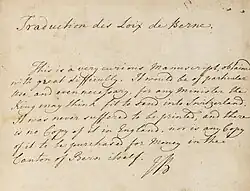 Traduction des Loix de Berne.
This is a very curious Manuscript, obtain
with great difficulty. It would be of particular
Use, and even necessary, for any Minister the
King may think fit to send into Switzerland.
It was never suffered to be printed, and there
is no Copy of it in England, nor is any Copy
of it to be purchased for Money in the
Canton of Bern itself.